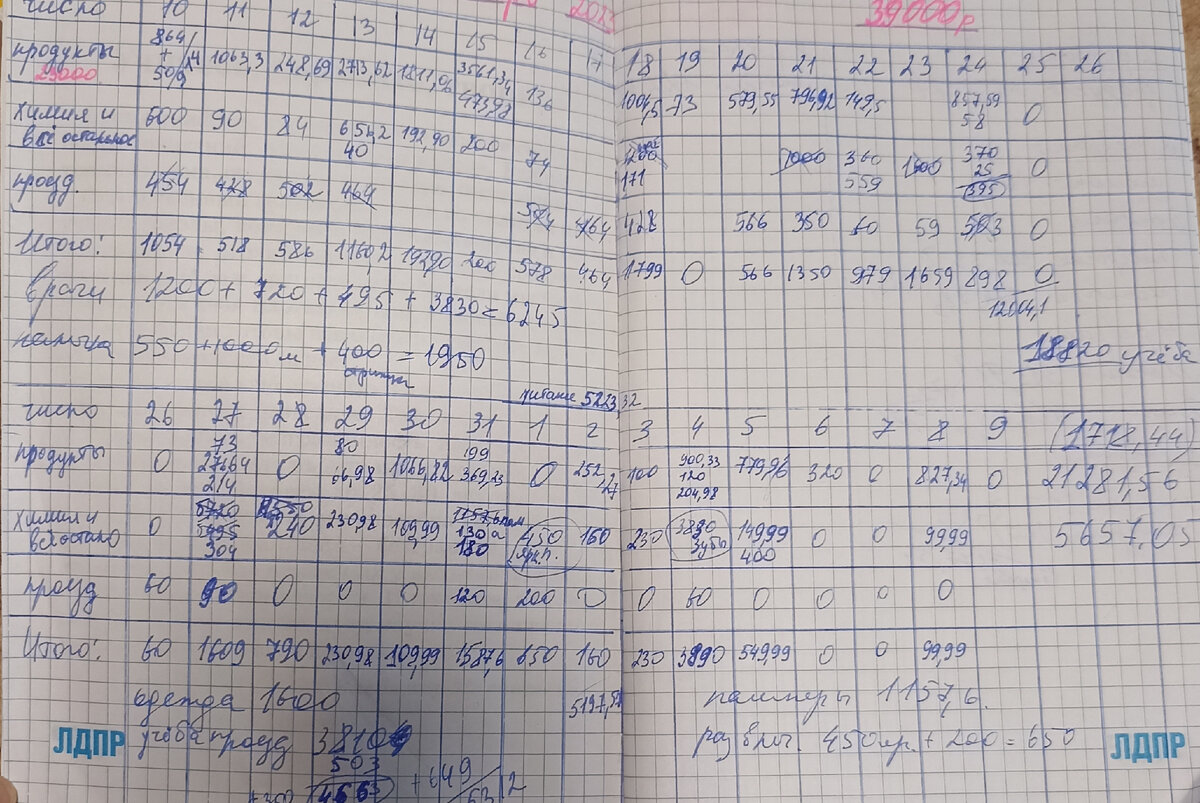 число 10 11 12 13 14 15 16 17 18 19 20 21 22 23 24 25 26
39000р
2023
продукты 864 1063,3 248,69 2713,62 1811,06 3561,34 136 1004,5 73 579,55 794,92 149,5 857,59 0
23000 + 506 4739,8 58
химия и 600 90 84 656,2 192,90 200 74 200 1000 360 1600 370 0
всё остальное 40 171 559 25
395
проезд. 454 428 502 464 574 464 428 566 350 60 59 503 0
Итого: 1054 518 586 1160,2 192,90 200 578 464 1799 0 566 1350 979 1659 898 0
12004,1
врачи 1200 + 720 + 495 + 3830 = 6245
550 + 1000 м + 400 = 1950
18820 учёба
питание 5223,32
число 26 27 28 29 30 31 1 2 3 4 5 6 7 8 9 (1718,44)
продукты 0 73 0 80 1066,82 199 0 252,27 100 900,33 779,96 320 0 827,34 0 21281,56
276,64 66,98 369,23 120
214 204,98
химия и 0 5720 550 230,98 109,99 1157,6 пам 450 160 230 3830 149,99 0 0 99,99 5657,05
всё остальн 5995 240 130 а крл. 3450 400
304 180
проезд 60 90 0 0 0 120 200 0 0 60 0 0 0 0
Итого: 60 1609 790 230,98 109,99 1587,6 650 160 230 3890 549,99 0 0 99,99
5197,5
одежда 1600
памперы 1157,6.
учёба проезд 3810
450 + 200 = 650
503
4663 + 649
ЛДПР
ЛДПР